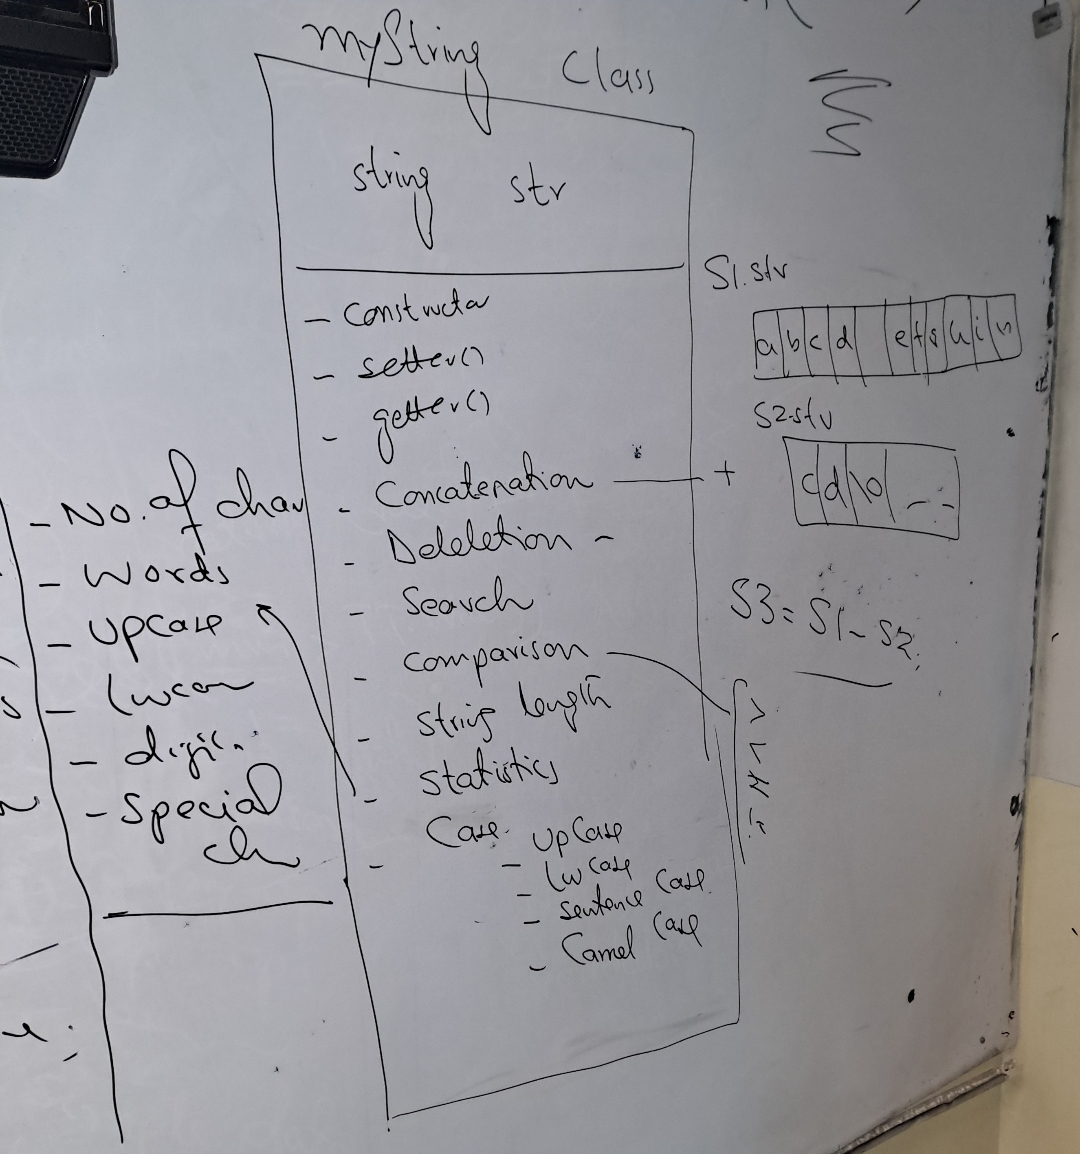 myString Class
string str
- Constructor
- setter()
- getter()
- Concatenation — +
- Deleletion -
- Search
- Comparison
- String length
- Statistics
- Case - upCase
- lwcase
- Sentence Case
- Camel Case
- No. of char
- Words
- upcase
- Special
ch
S1.str
a b c d e f g h i n
S2.str
c d \0 _ . -
S3 = S1 - S2
>
<